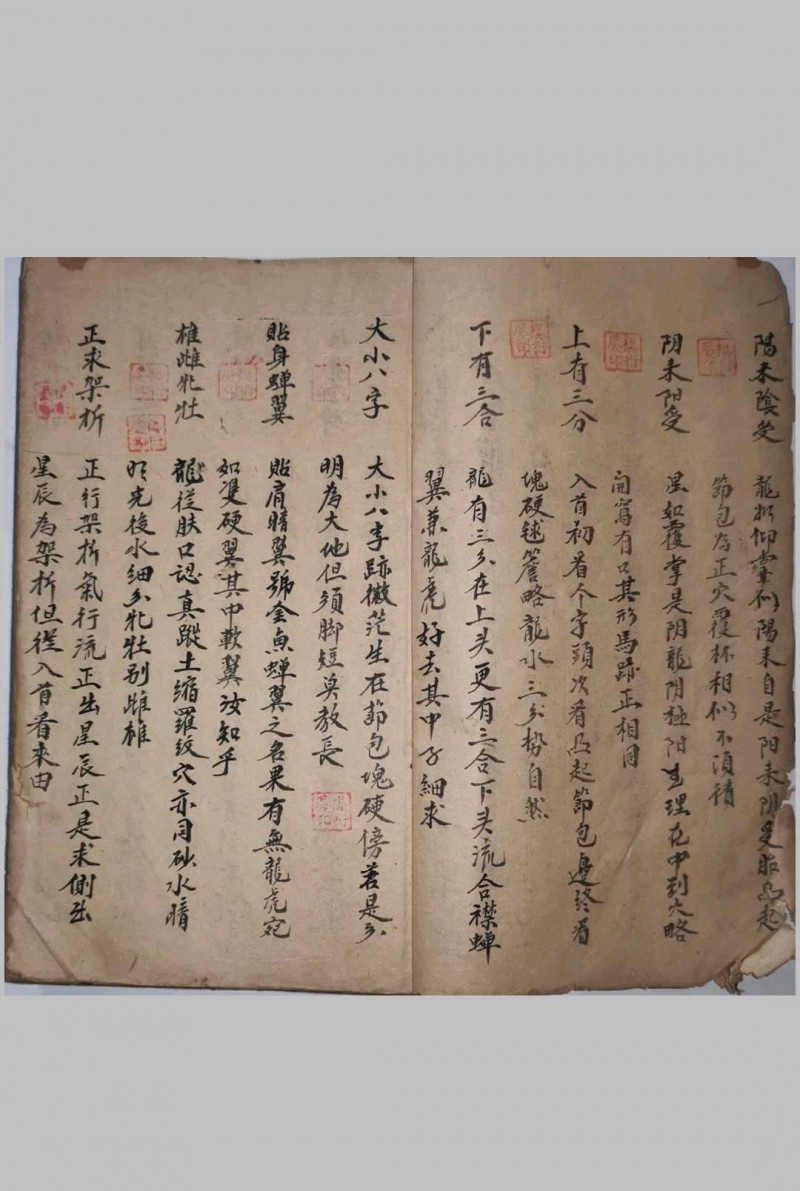 陽来陰受 龍如仰掌似陽来自是阳来阴受脈凸起
節包為正穴覆杯相似不須積
阴来阳受 星如覆掌是阴龍阴極阳生理在中到穴略
開窩有口其形馬跡正相同
上有三分 入首初看个字頭次看凸起節包邊終看
塊硬毬簷略龍水三分勢自然
下有三合 龍有三分在上头更有三合下头流合襟蝉
翼兼龍虎好去其中子細求
大小八字 大小八字跡微茫生在節包塊硬傍若是分
明為大他但须脚短莫教長
貼身蝉翼 貼肩暗翼號金魚蝉翼之名果有無龍虎宛
如雙硬翼其中軟翼汝知乎
雄雌牝牡 龍従肤口認真蹤土缩羅紋穴亦同砂水暗
明先後水細分牝牡别雌雄
正求架折 正行架折氣行流正出星辰正是求側出
星辰為架折但従入首看来由